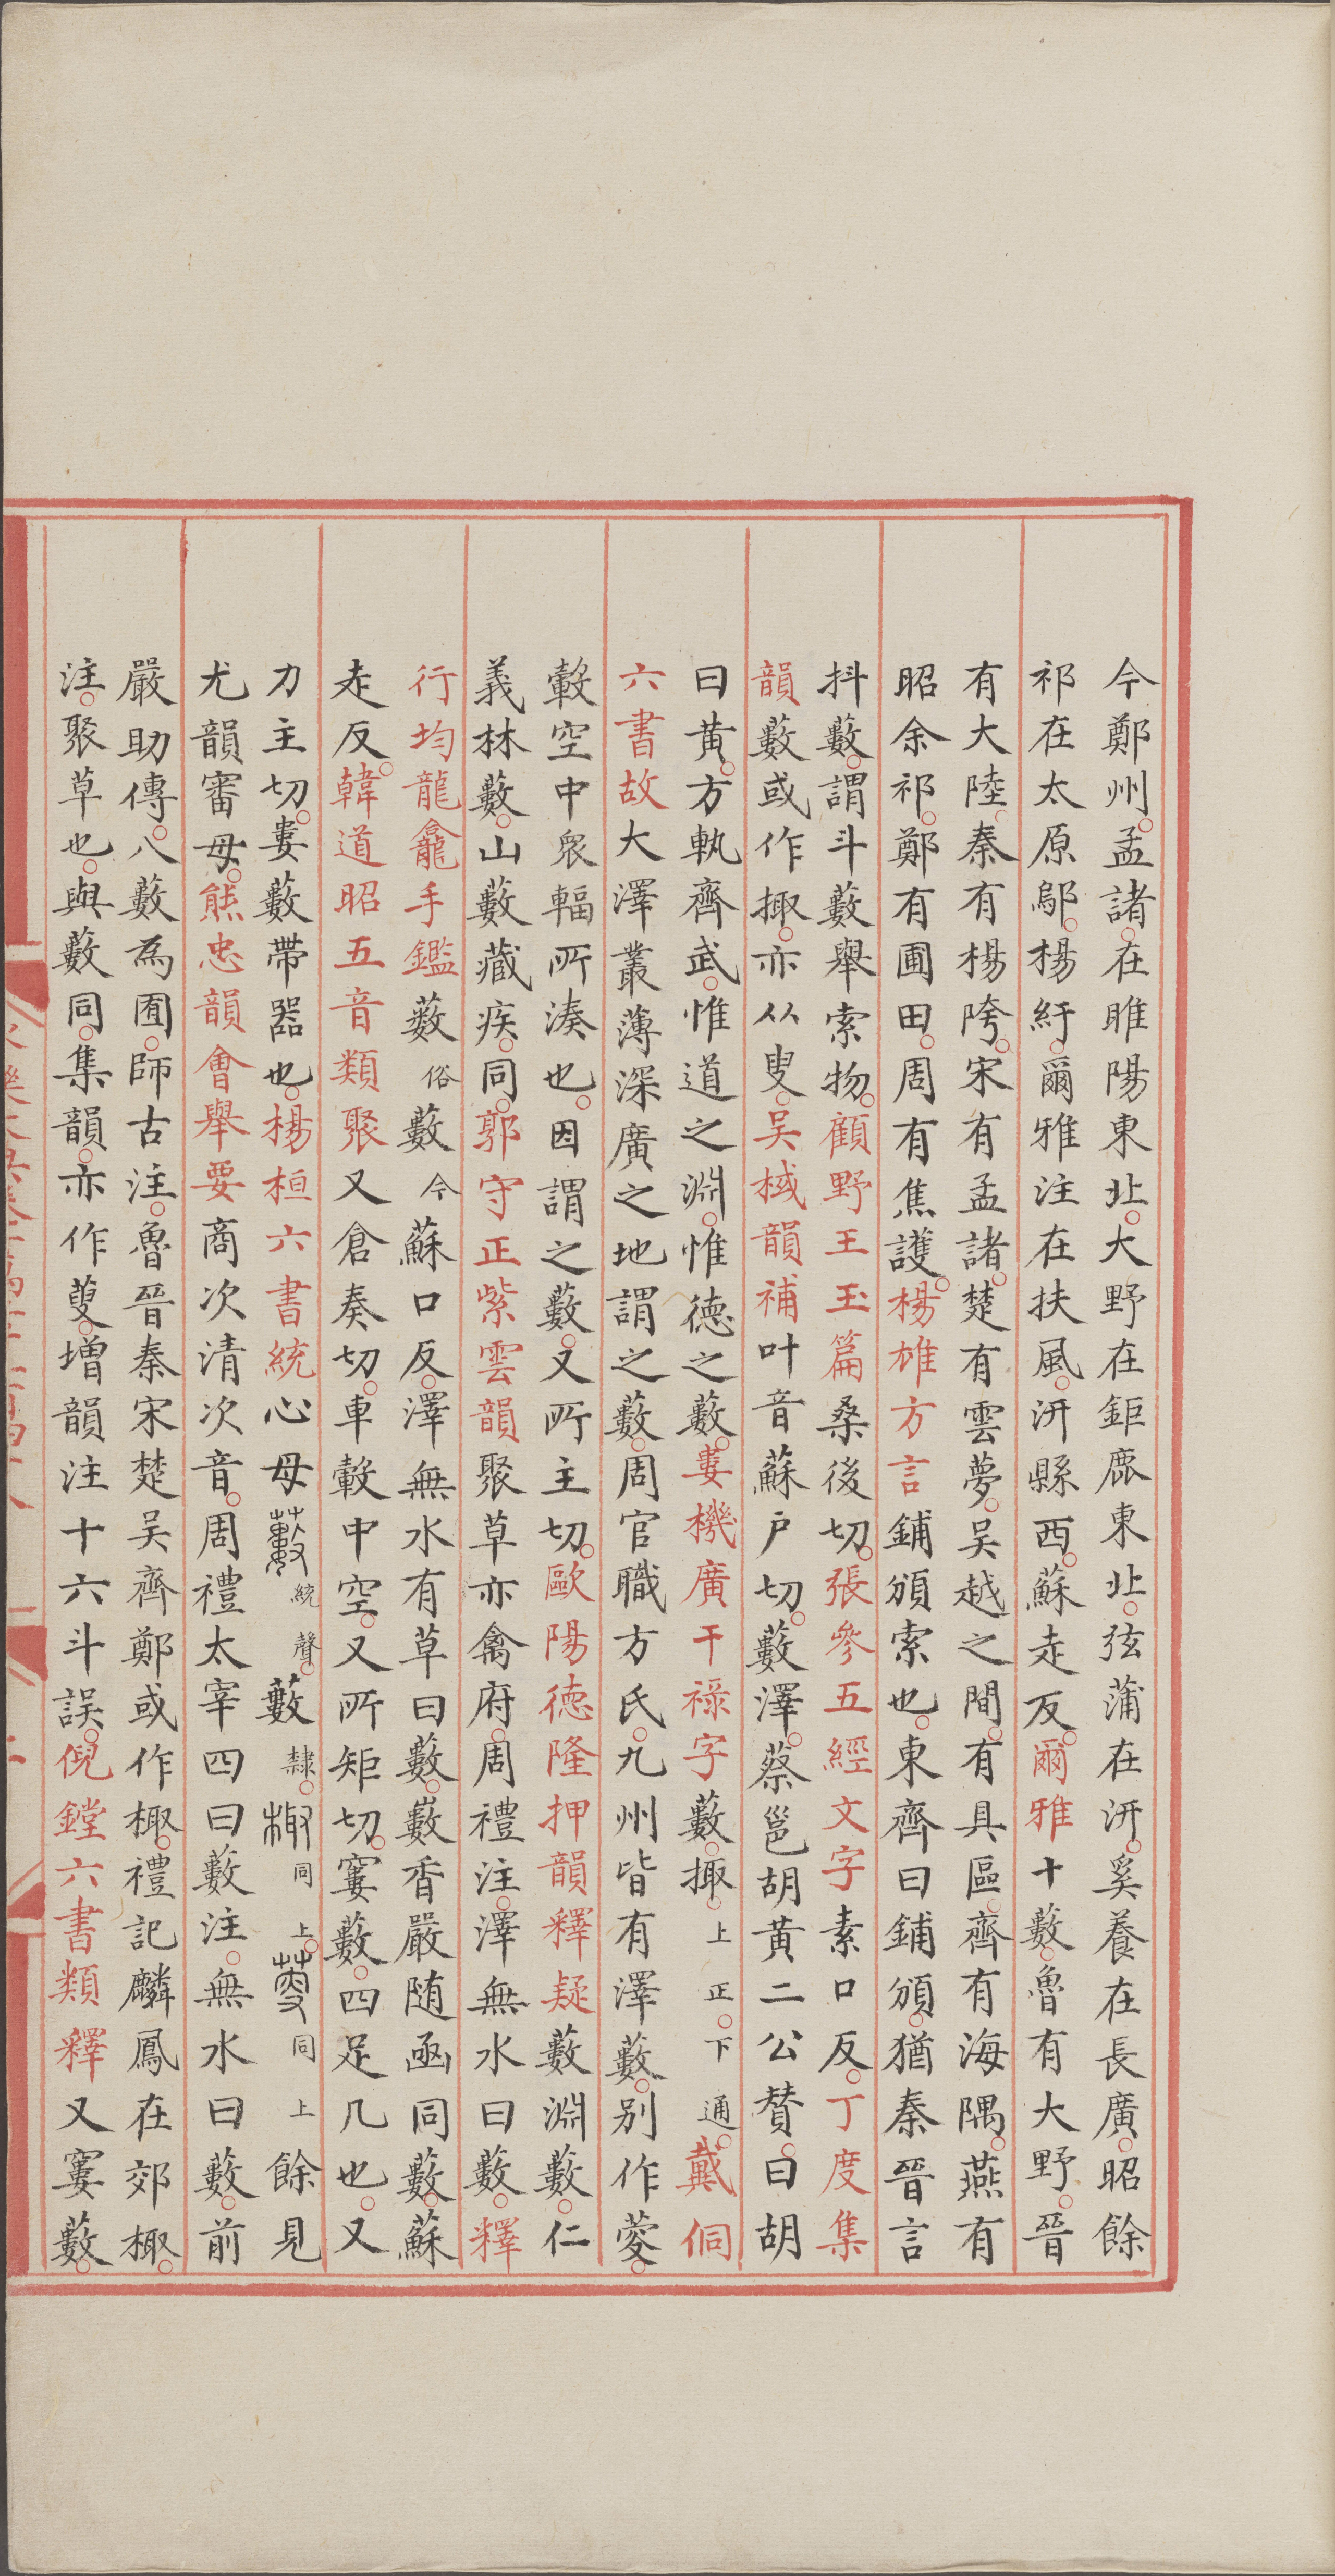 今鄭州孟諸在睢陽東北大野在鉅鹿東北弦蒲在汧奚養在長廣昭餘
祁在太原鄔楊紆爾雅注在扶風汧縣西蘇走反爾雅十藪魯有大野晉
有大陸秦有楊陓宋有孟諸楚有雲夢吳越之間有具區齊有海隅燕有
昭余祁鄭有圃田周有焦護楊雄方言鋪頒索也東齊曰鋪頒猶秦晉言
抖藪謂斗藪舉索物顧野王玉篇桑後切張參五經文字素口反丁度集
韻藪或作掫亦从叟吳棫韻補叶音蘇戶切藪澤蔡邕胡黃二公贊曰胡
曰黃方軌齊武惟道之淵惟德之藪婁機廣干祿字藪掫上正下通戴侗
六書故大澤叢薄深廣之地謂之藪周官職方氏九州皆有澤藪別作薆
轂空中眾輻所湊也因謂之藪又所主切歐陽德隆押韻釋疑藪淵藪仁
義林藪山藪藏疾同郭守正紫雲韻聚草亦禽府周禮注澤無水曰藪釋
行均龍龕手鑑藪俗藪今蘇口反澤無水有草曰藪籔香嚴随函同藪蘇
走反韓道昭五音類聚又倉奏切車轂中空又所矩切窶藪四足几也又
力主切婁藪帶器也楊桓六書統心母藪統聲藪隸棷同上䕅同上餘見
尤韻審母熊忠韻會舉要商次清次音周禮太宰四曰藪注無水曰藪前
嚴助傳八藪為囿師古注魯晉秦宋楚吳齊鄭或作棷禮記麟鳳在郊棷
注聚草也與藪同集韻亦作䕅增韻注十六斗誤倪鏜六書類釋又窶藪